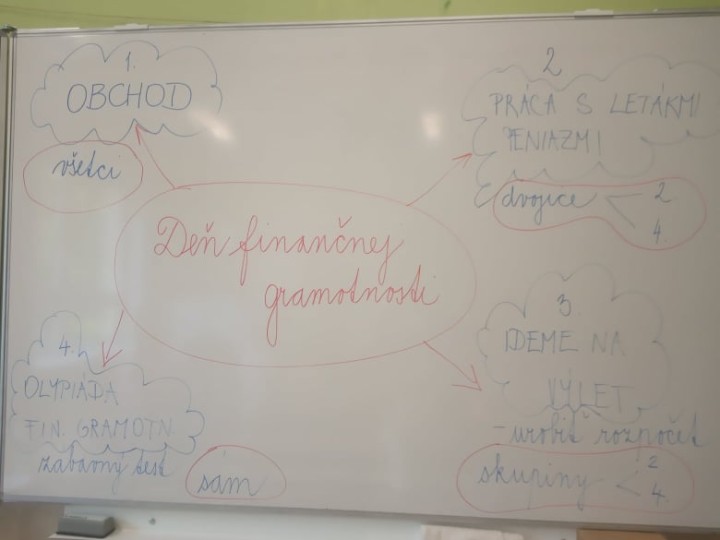 1.
OBCHOD
všetci
2
PRÁCA S LETÁKMI
PENIAZMI
dvojice
2
4
Deň finančnej
gramotnosti
3.
IDEME NA
VÝLET
- urobiť rozpočet
skupiny
2
4
4.
OLYPIÁDA
FIN. GRAMOTN
zábavný test
sám